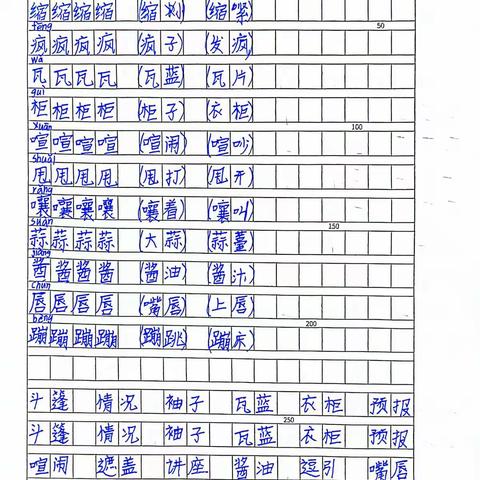 缩缩缩缩 (缩剑) (缩紧)
50
fēng
疯疯疯疯 (疯子) (发疯)
wǎ
瓦瓦瓦瓦 (瓦蓝) (瓦片)
guì
柜柜柜柜 (柜子) (衣柜)
xuān
喧喧喧喧 (喧闹) (喧吵)
100
shuǎi
甩甩甩甩 (甩打) (甩开)
rǎng
嚷嚷嚷嚷 (嚷着) (嚷叫)
suàn
蒜蒜蒜蒜 (大蒜) (蒜薹)
150
jiàng
酱酱酱酱 (酱油) (酱汁)
chún
唇唇唇唇 (嘴唇) (上唇)
bèng
蹦蹦蹦蹦 (蹦跳) (蹦床)
200
斗篷 情况 袖子 瓦蓝 衣柜 预报
250
斗篷 情况 袖子 瓦蓝 衣柜 预报
喧闹 遮盖 讲座 酱油 逗引 嘴唇